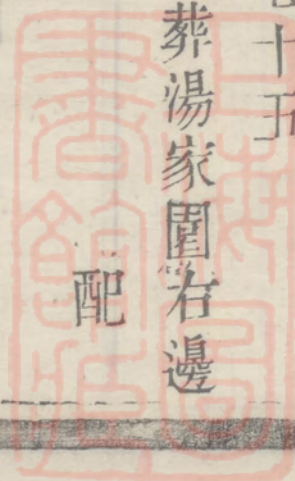 十五
葬湯家園右邊
配